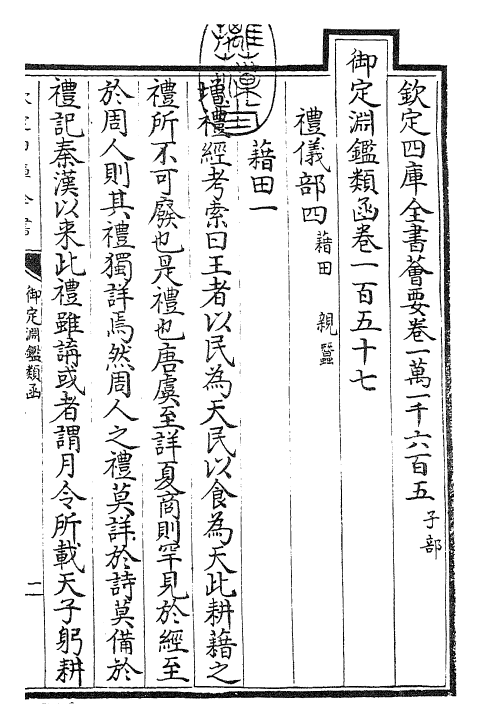 欽定四庫全書薈要卷一萬一千六百五 子部
御定淵鑑類函卷一百五十七
禮儀部四 藉田 親蠶
藉田一
增禮經考索曰王者以民為天民以食為天此耕藉之
禮所不可廢也是禮也唐虞至詳夏商則罕見於經至
於周人則其禮獨詳焉然周人之禮莫詳於詩莫備於
禮記秦漢以来此禮雖講或者謂月令所載天子躬耕
御定淵鑑類函